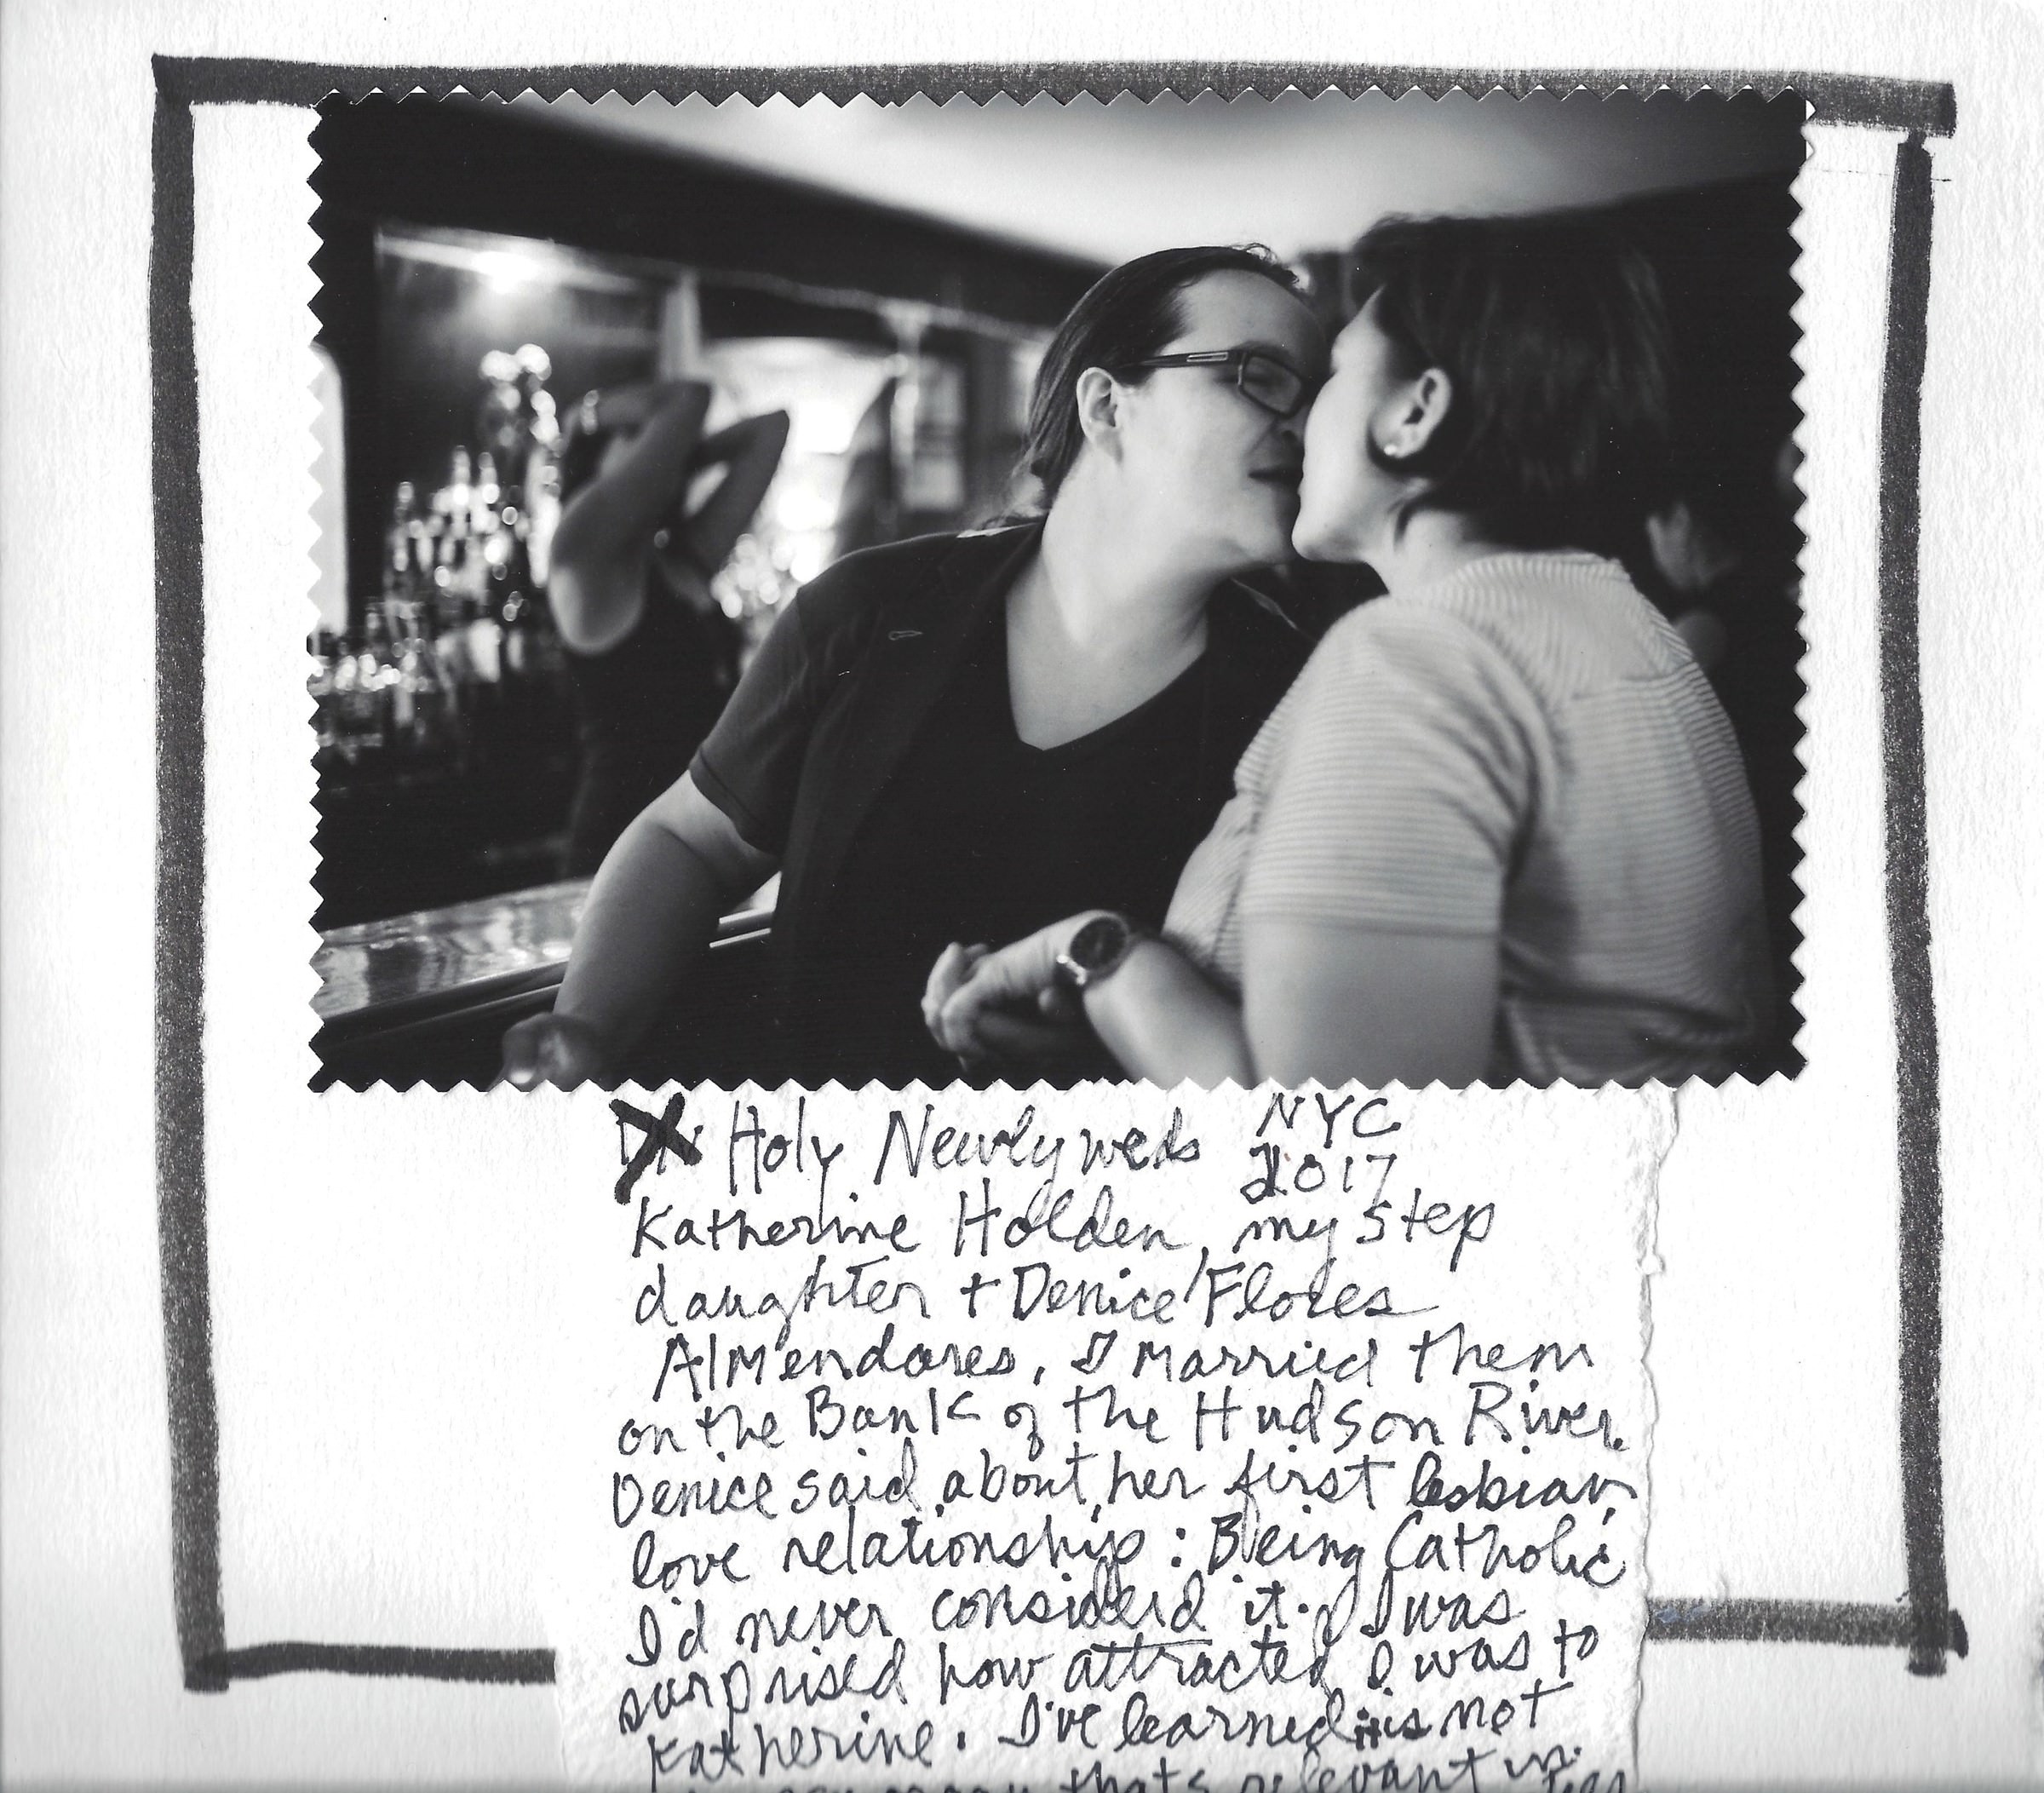 Holy Newlyweds NYC
2017
Katherine Holden, my step
daughter + Denice Flores
Almendares. I married them
on the Bank of the Hudson River.
Denice said about her first lesbian
love relationship: Being Catholic
I'd never considerd it. I was
surprised how attracted I was to
Katherine. I've learned it is not
thats relevant in